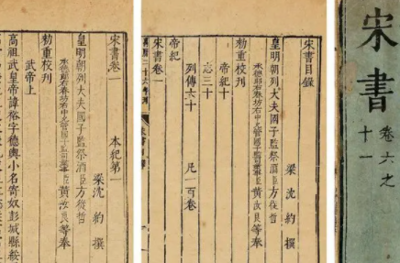 宋書
卷六之
十一
宋書目錄
梁沈約撰
皇明朝列大夫國子監祭酒臣方從哲
承德郎右春坊右中允管國子監司業事臣黃汝良等奉
勅重校刊
帝紀十
志三十
列傳六十
凡一百卷
帝紀
宋書卷一
本紀第一
宋書卷一
梁沈約撰
皇明朝列大夫國子監祭酒臣方從哲
承德郎右春坊右中允管國子監司業事臣黃汝良等奉
勅重校刊
武帝上
高祖武皇帝諱裕字德輿小名寄奴彭城縣